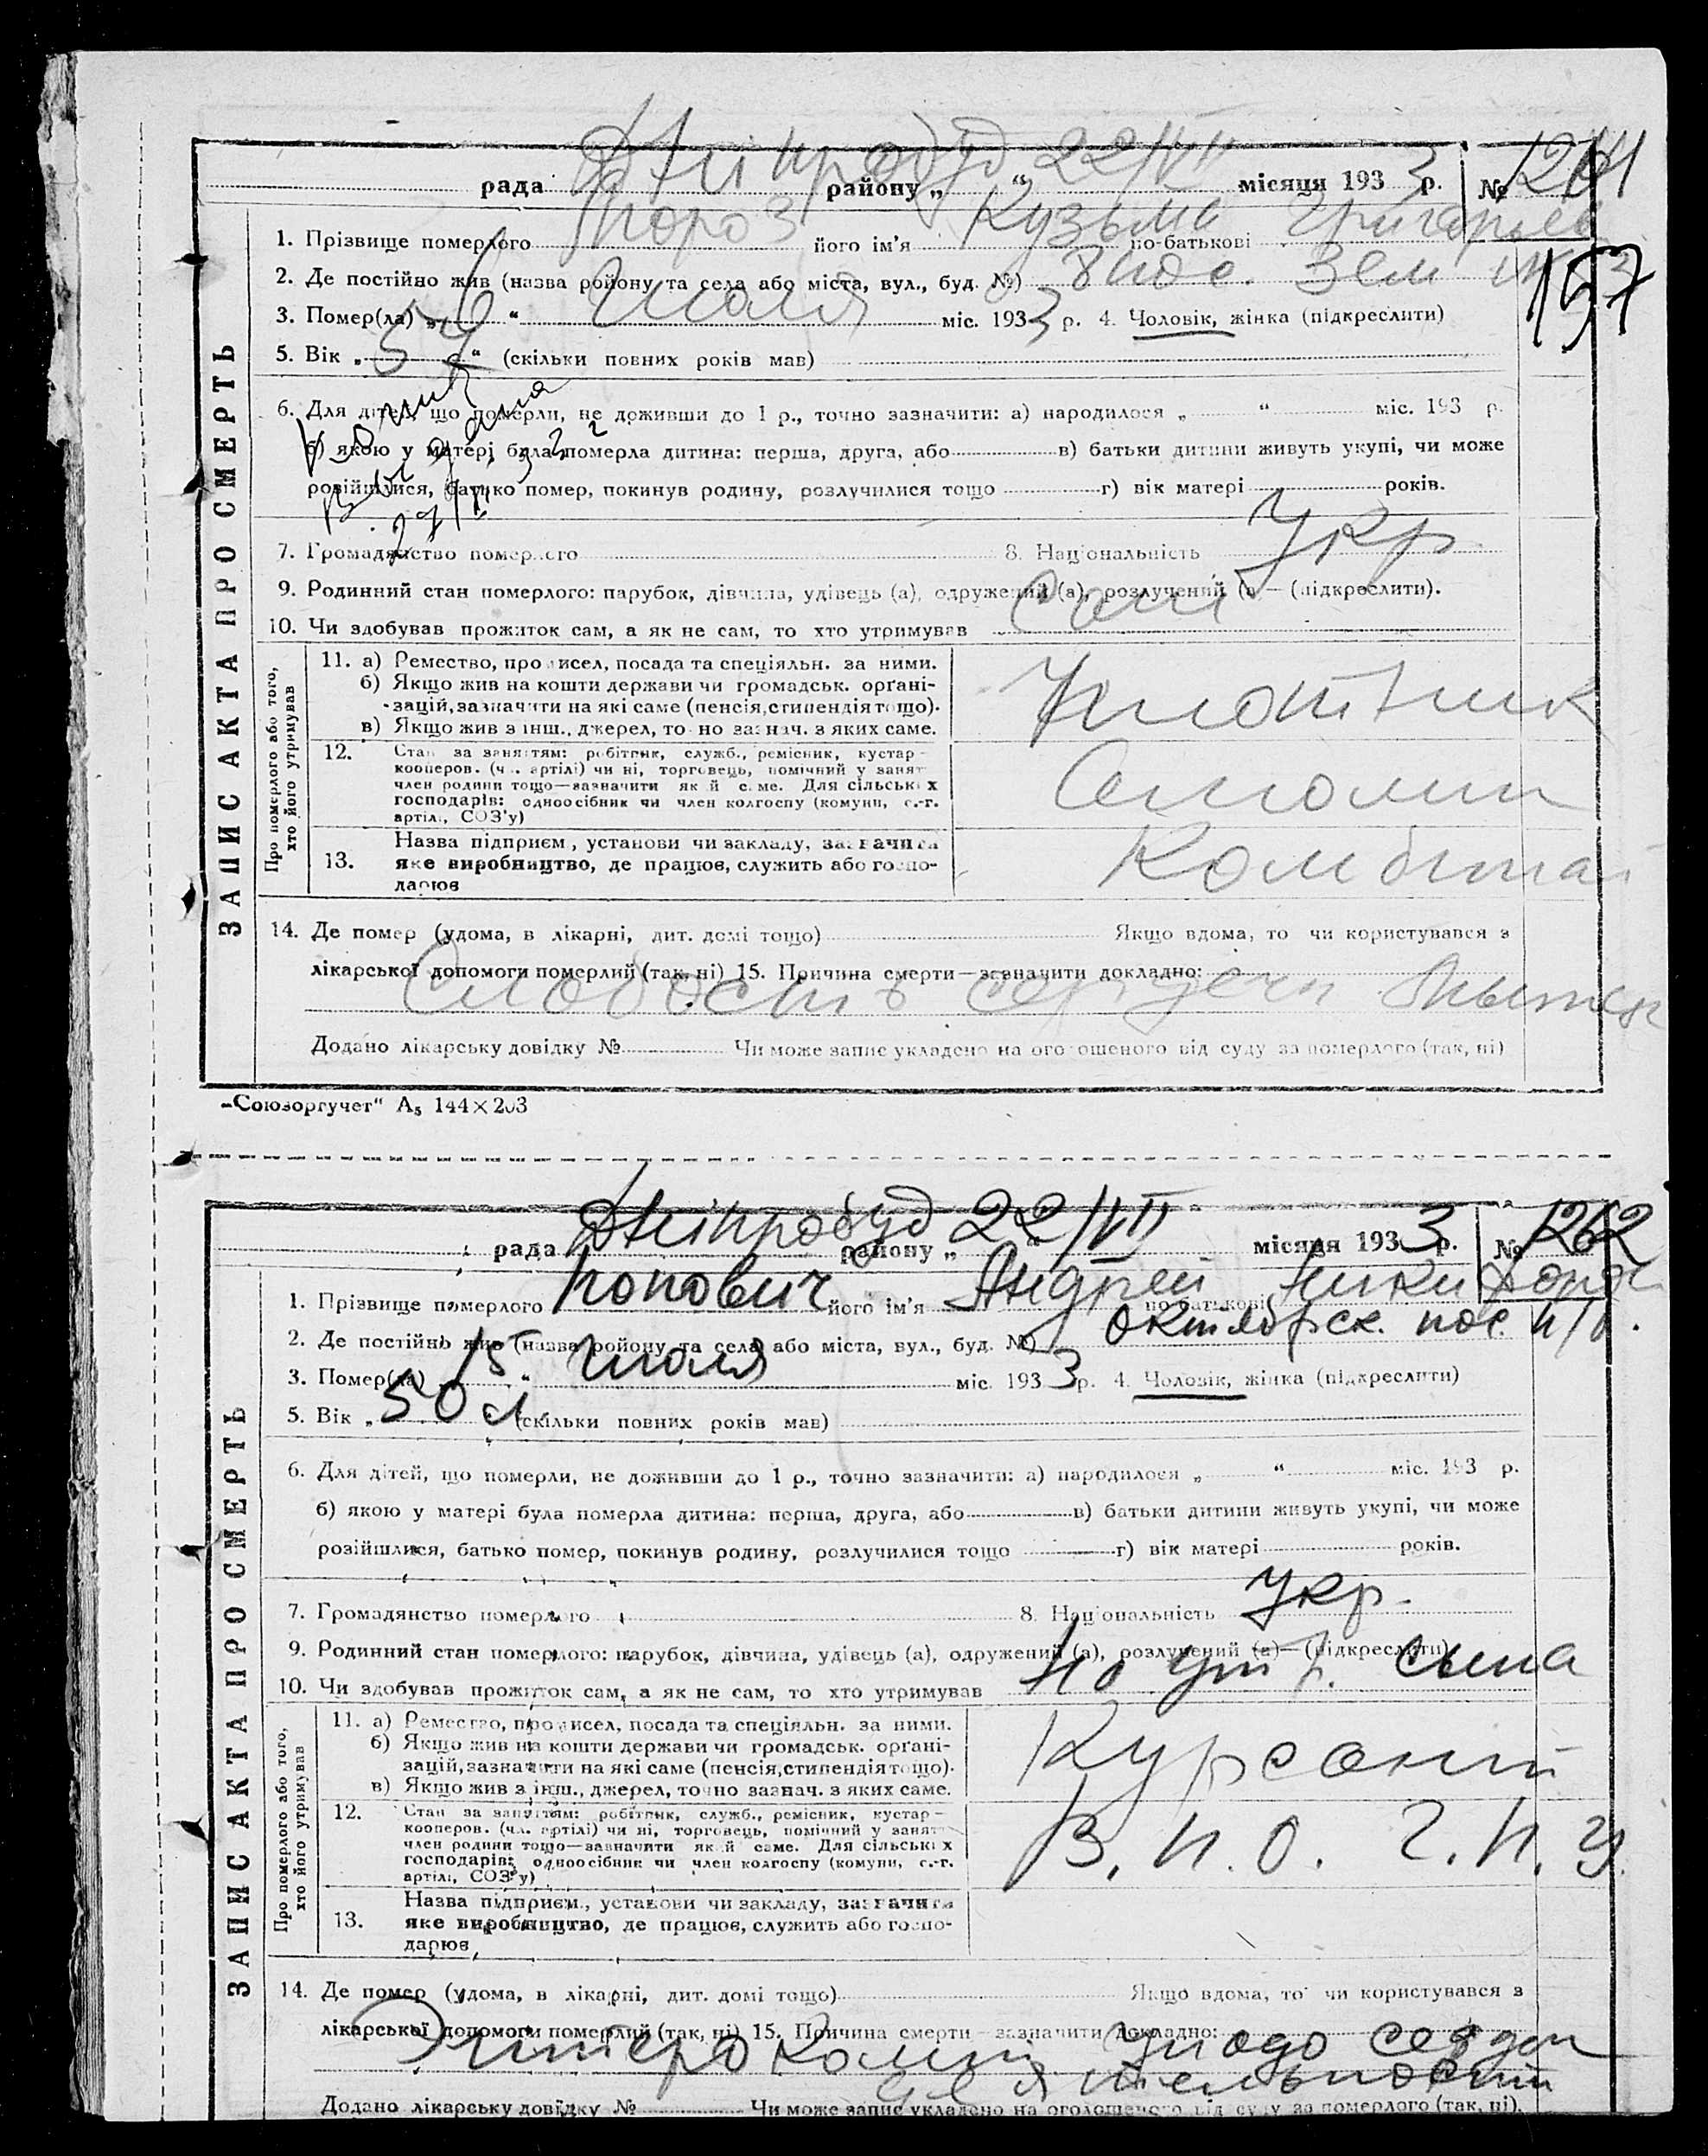 Дніпробуд 22/VII
рада району „ “ місяця 1933 р. № 1261
1. Прізвище померлого Мороз його ім’я Кузьма по-батькові Григорьев
2. Де постійно жив (назва району та села або міста, вул., буд. №) 8 пос. Зем
157
3. Помер(ла) „6“ Июля міс. 1933 р. 4. Чоловік, жінка (підкреслити)
5. Вік „54“ (скільки повних років мав)
6. Для дітей, що померли, не доживши до 1 р., точно зазначити: а) народилося „ “ міс. 193 р.
б) якою у матері була померла дитина: перша, друга, або в) батьки дитини живуть укупі, чи може
розійшлися, батько помер, покинув родину, розлучилися тощо г) вік матері років.
7. Громадянство померлого 8. Національність Укр
9. Родинний стан померлого: парубок, дівчина, удівець (а), одружений (а), розлучений (а — (підкреслити).
10. Чи здобував прожиток сам, а як не сам, то хто утримував Сам
ЗАПИС АКТА ПРО СМЕРТЬ
Про померлого або того, хто його утримував
11. а) Ремество, промисел, посада та спеціяльн. за ними.
б) Якщо жив на кошти держави чи громадськ. орґані-
зацій, зазначити на які саме (пенсія, стипендія тощо).
в) Якщо жив з інш., джерел, точно зазнач. з яких саме.
Плотник
12. Стан за заняттям: робітник, служб., ремісник, кустар—
кооперов. (чл. артілі) чи ні, торговець, помічний у занят
член родини тощо—зазначити який саме. Для сільських
господарів: одноосібник чи член колгоспу (комуни, с.-г.
артіл., СОЗ’у)
13. Назва підприєм., установи чи закладу, зазначити
яке виробництво, де працюв, служить або госпо-
дарюв
14. Де помер (удома, в лікарні, дит. домі тощо) Якщо вдома, то чи користувався з
лікарської допомоги померлий (так, ні) 15. Причина смерти—зазначити докладно:
Слабость сердечн
Додано лікарську довідку № Чи може запис укладено на оголошеного від суду за померлого (так, ні)
„Союзоргучет“ А₅ 144×203
Дніпробуд 22/VII
рада району „ “ місяця 1933 р. № 1262
1. Прізвище померлого Попович його ім’я Андрей по-батькові Никифоров
2. Де постійно жив (назва району та села або міста, вул., буд. №) Октябрск. пос.
3. Помер(ла) 15 “ Июля міс. 1933 р. 4. Чоловік, жінка (підкреслити)
5. Вік „50 л. (скільки повних років мав)
6. Для дітей, що померли, не доживши до 1 р., точно зазначити: а) народилося „ “ міс. 193 р.
б) якою у матері була померла дитина: перша, друга, або в) батьки дитини живуть укупі, чи може
розійшлися, батько помер, покинув родину, розлучилися тощо г) вік матері років.
7. Громадянство померлого 8. Національність Укр.
9. Родинний стан померлого: парубок, дівчина, удівець (а), одружений (а), розлучений (а)— (підкреслити)
10. Чи здобував прожиток сам, а як не сам, то хто утримував сына
ЗАПИС АКТА ПРО СМЕРТЬ
Про померлого або того, хто його утримував
11. а) Ремество, промисел, посада та спеціяльн. за ними.
б) Якщо жив на кошти держави чи громадськ. орґані-
зацій, зазначити на які саме (пенсія, стипендія тощо).
в) Якщо жив з інш., джерел, точно зазнач. з яких саме.
Курсант
12. Стан за заняттям: робітник, служб., ремісник, кустар—
кооперов. (чл. артілі) чи ні, торговець, помічний у занят
член родини тощо—зазначити який саме. Для сільських
господарів: одноосібник чи член колгоспу (комуни, с.-г.
артіл., СОЗ’у)
В. П. О. Г. П. У.
13. Назва підприєм., установи чи закладу, зазначити
яке виробництво, де працює, служить або госпо-
дарюв
14. Де помер (удома, в лікарні, дит. домі тощо) Якщо вдома, то чи користувався з
лікарської допомоги померлий (так, ні) 15. Причина смерти—зазначити докладно:
Энтероколит Упадо сердеч
деятельности
Додано лікарську довідку № Чи може запис укладено на оголошеного від суду за померлого (так, ні).